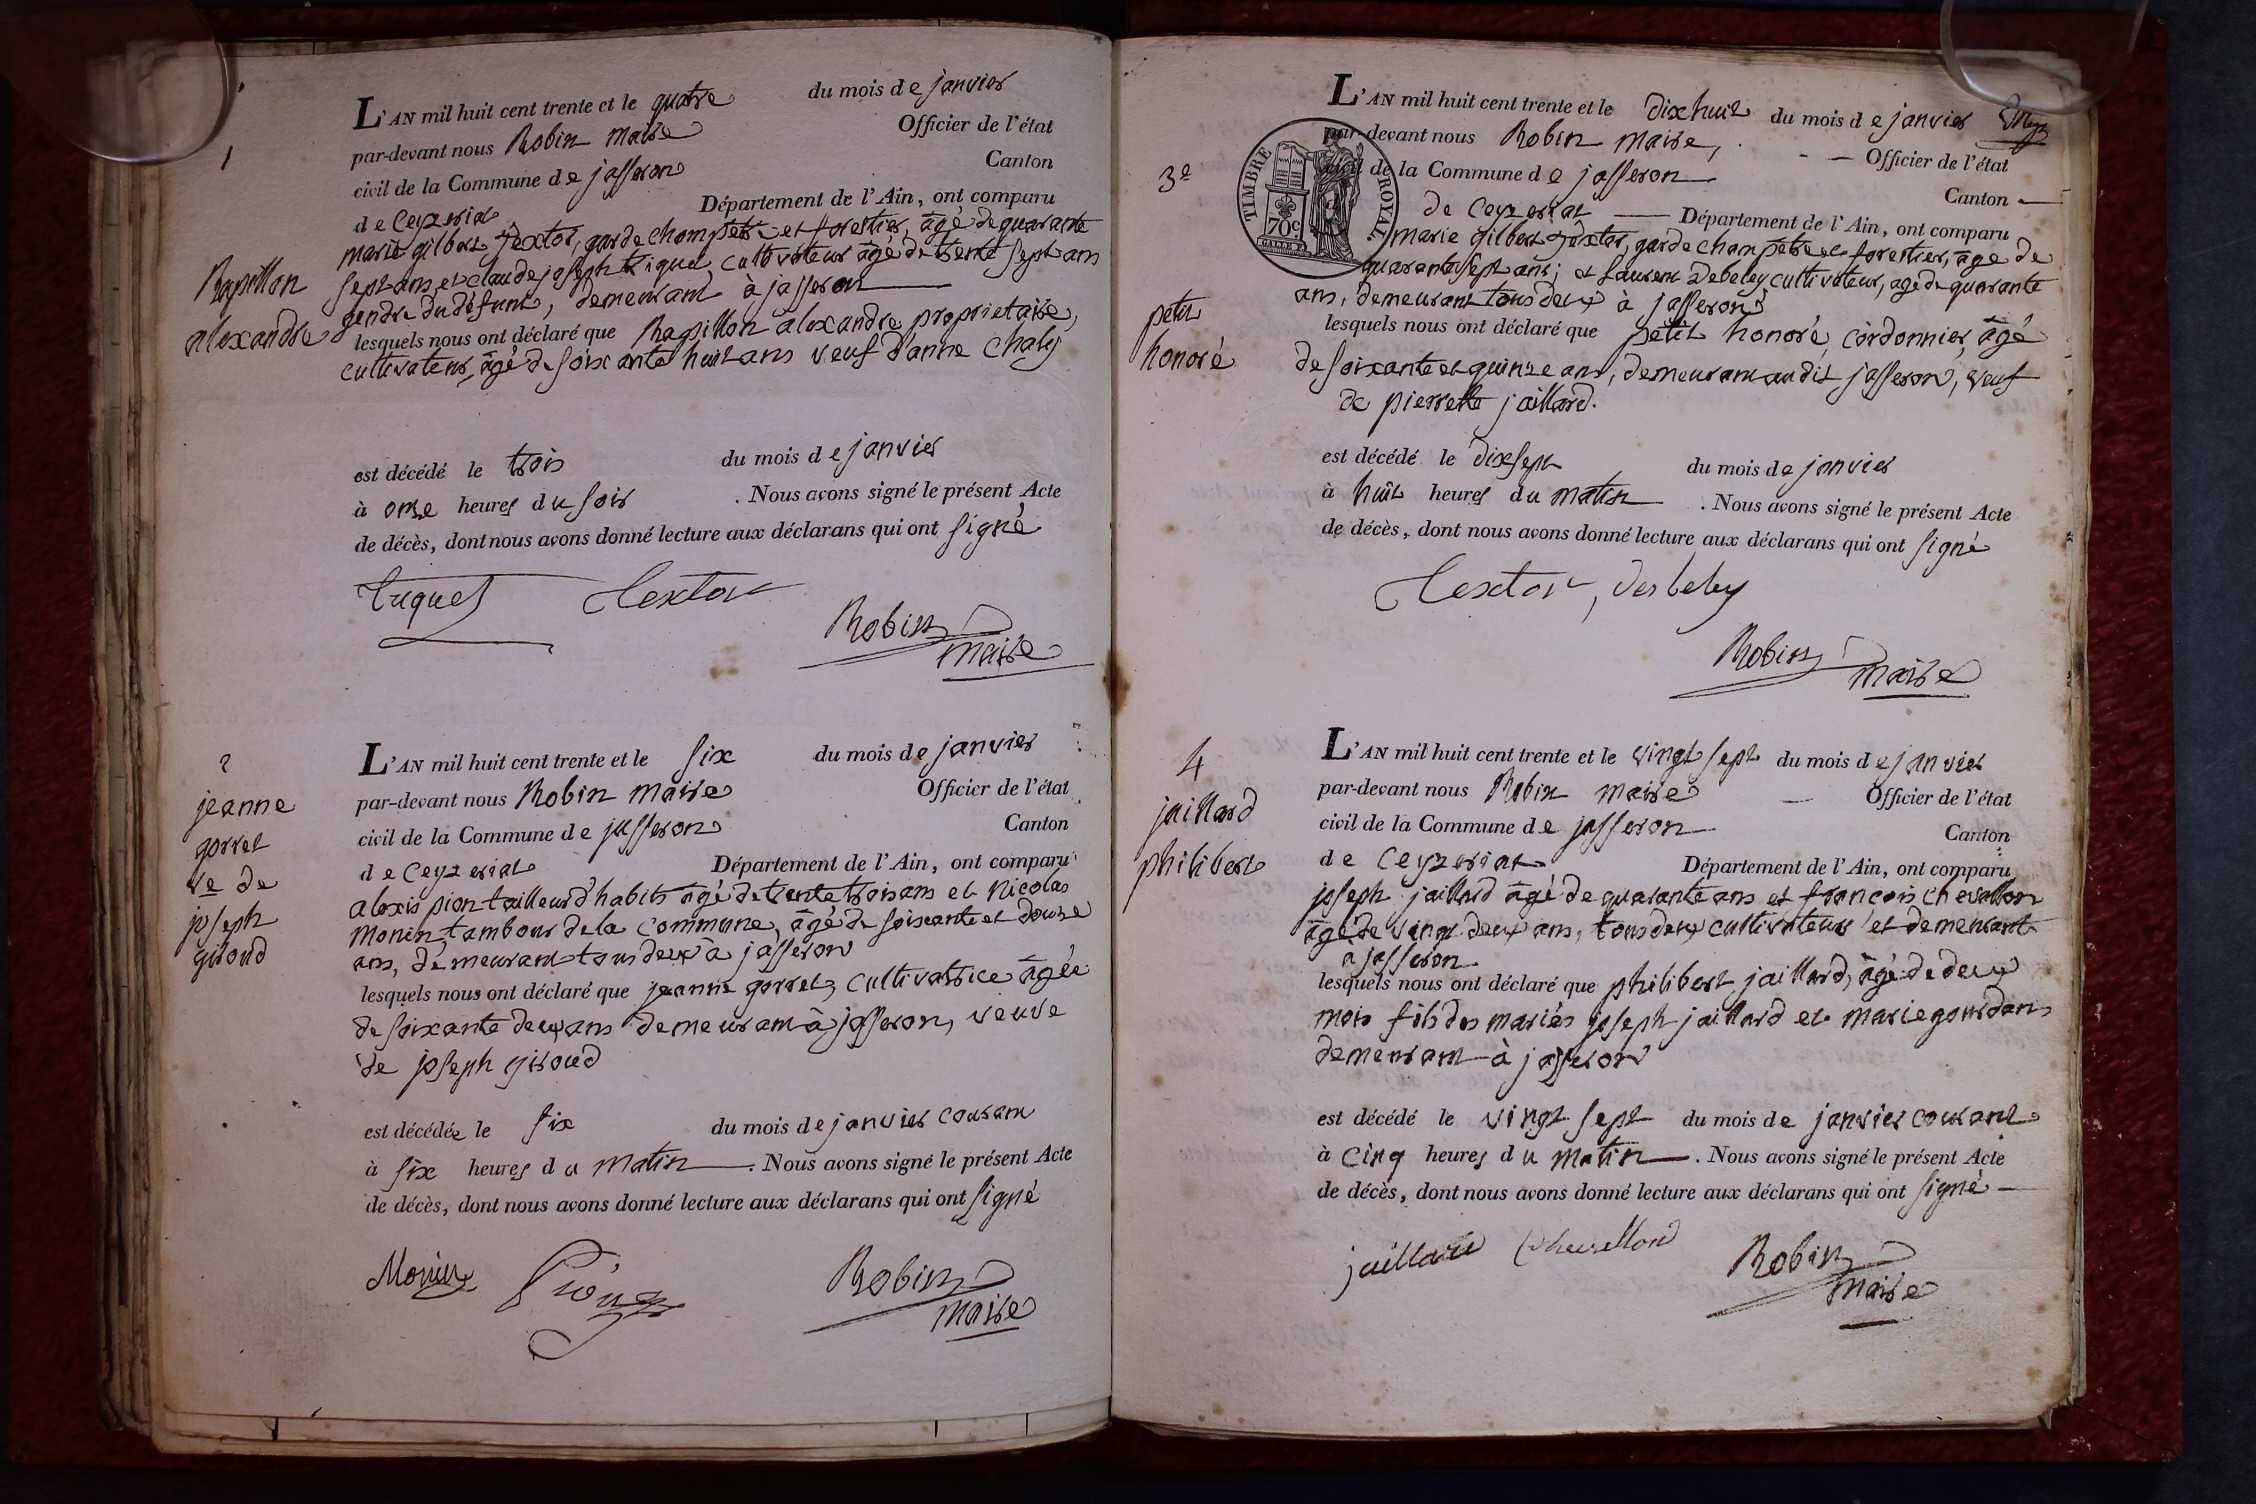 1
Rapillon
alexandre
L'AN mil huit cent trente et le quatre du mois de janvier
par-devant nous Robin maire Officier de l'état
civil de la Commune de jasseron Canton
de Ceyzeriat Département de l'Ain, ont comparu
marie gilbert textor, garde champetre et forestier, âgé de quarante
sept ans et claude joseph tiquet, cultivateur âgé de trente sept ans
gendre du défunt, demeurant à jasseron
lesquels nous ont déclaré que Rapillon alexandre proprietaire,
cultivateur, âgé de soixante huit ans veuf d'anne Chaley
est décédé le trois du mois de janvier
à onze heures du soir . Nous avons signé le présent Acte
de décès, dont nous avons donné lecture aux déclarans qui ont signé
textor
Robin
maire
2
jeanne
gorret
ve de
joseph
giroud
L'AN mil huit cent trente et le six du mois de janvier
par-devant nous Robin maire Officier de l'état
civil de la Commune de jasseron Canton
de Ceyzeriat Département de l'Ain, ont comparu
alexis pion tailleur d'habits âgé de trente trois ans et Nicolas
monin tambour de la commune, âgé de soixante et douze
ans, demeurant tous deux à jasseron
lesquels nous ont déclaré que jeanne gorret, cultivatrice âgée
de soixante deux ans demeurant à jasseron, veuve
de joseph giroud
est décédée le six du mois de janvier courant
à six heures du matin . Nous avons signé le présent Acte
de décès, dont nous avons donné lecture aux déclarans qui ont signé
Monin
Robin
maire
3e
petit
honoré
TIMBRE ROYAL
70c
L'AN mil huit cent trente et le dix huit du mois de janvier
par-devant nous Robin maire, Officier de l'état
civil de la Commune de jasseron Canton
de Ceyzeriat Département de l'Ain, ont comparu
marie gilbert textor, garde champetre et forestier, âgé de
quarante sept ans; et laurent Debeley cultivateur, agé de quarante
ans, demeurant tous deux à jasseron
lesquels nous ont déclaré que petit honoré, cordonnier, âgé
de soixante et quinze ans, demeurant audit jasseron, veuf
de pierrette jaillard.
est décédé le dix sept du mois de janvier
à huit heures du matin . Nous avons signé le présent Acte
de décès, dont nous avons donné lecture aux déclarans qui ont signé
textor, desbeley
Robin
maire
4
jaillard
philibert
L'AN mil huit cent trente et le vingt sept du mois de janvier
par-devant nous Robin maire Officier de l'état
civil de la Commune de jasseron Canton
de Ceyzeriat Département de l'Ain, ont comparu
joseph jaillard âgé de quarante ans et francois chevallon
âgé de vingt deux ans, tous deux cultivateurs et demeurant
a jasseron
lesquels nous ont déclaré que philibert jaillard, âgé de deux
mois fils des mariés joseph jaillard et marie gourdans
demeurant à jasseron
est décédé le vingt sept du mois de janvier courant
à cinq heures du matin . Nous avons signé le présent Acte
de décès, dont nous avons donné lecture aux déclarans qui ont signé
jaillard Chevellond
Robin
maire